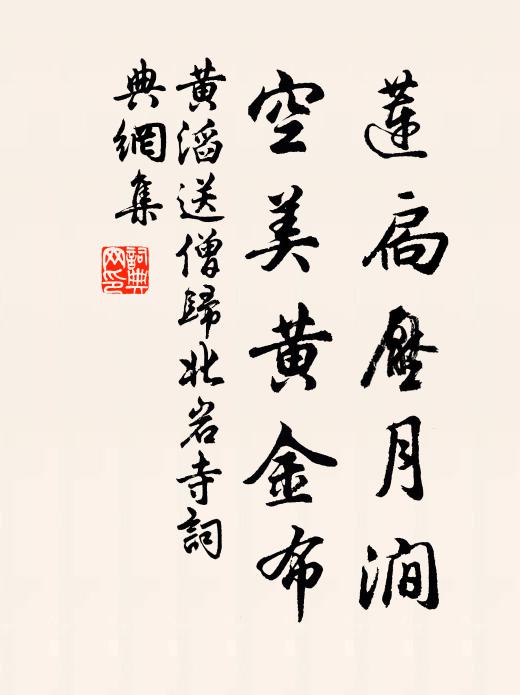 蓮扃壓月澗
空美黄金布
黄滔送僧歸北岩寺詞
典網集
詞典網印